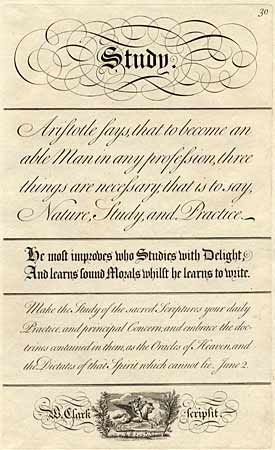 30
Study.
Aristotle says, that to become an
able Man in any profession, three
things are necessary, that is to say,
Nature, Study, and Practice.
He most improves who Studies with Delight,
And learns sound Morals whilst he learns to write.
Make the Study of the sacred Scriptures your daily
Practice, and principal Concern; and embrace the doc-
trines contained in them, as the Oracles of Heaven, and
the Dictates of that Spirit which cannot lie. June 2.
W. Clark scripsit.